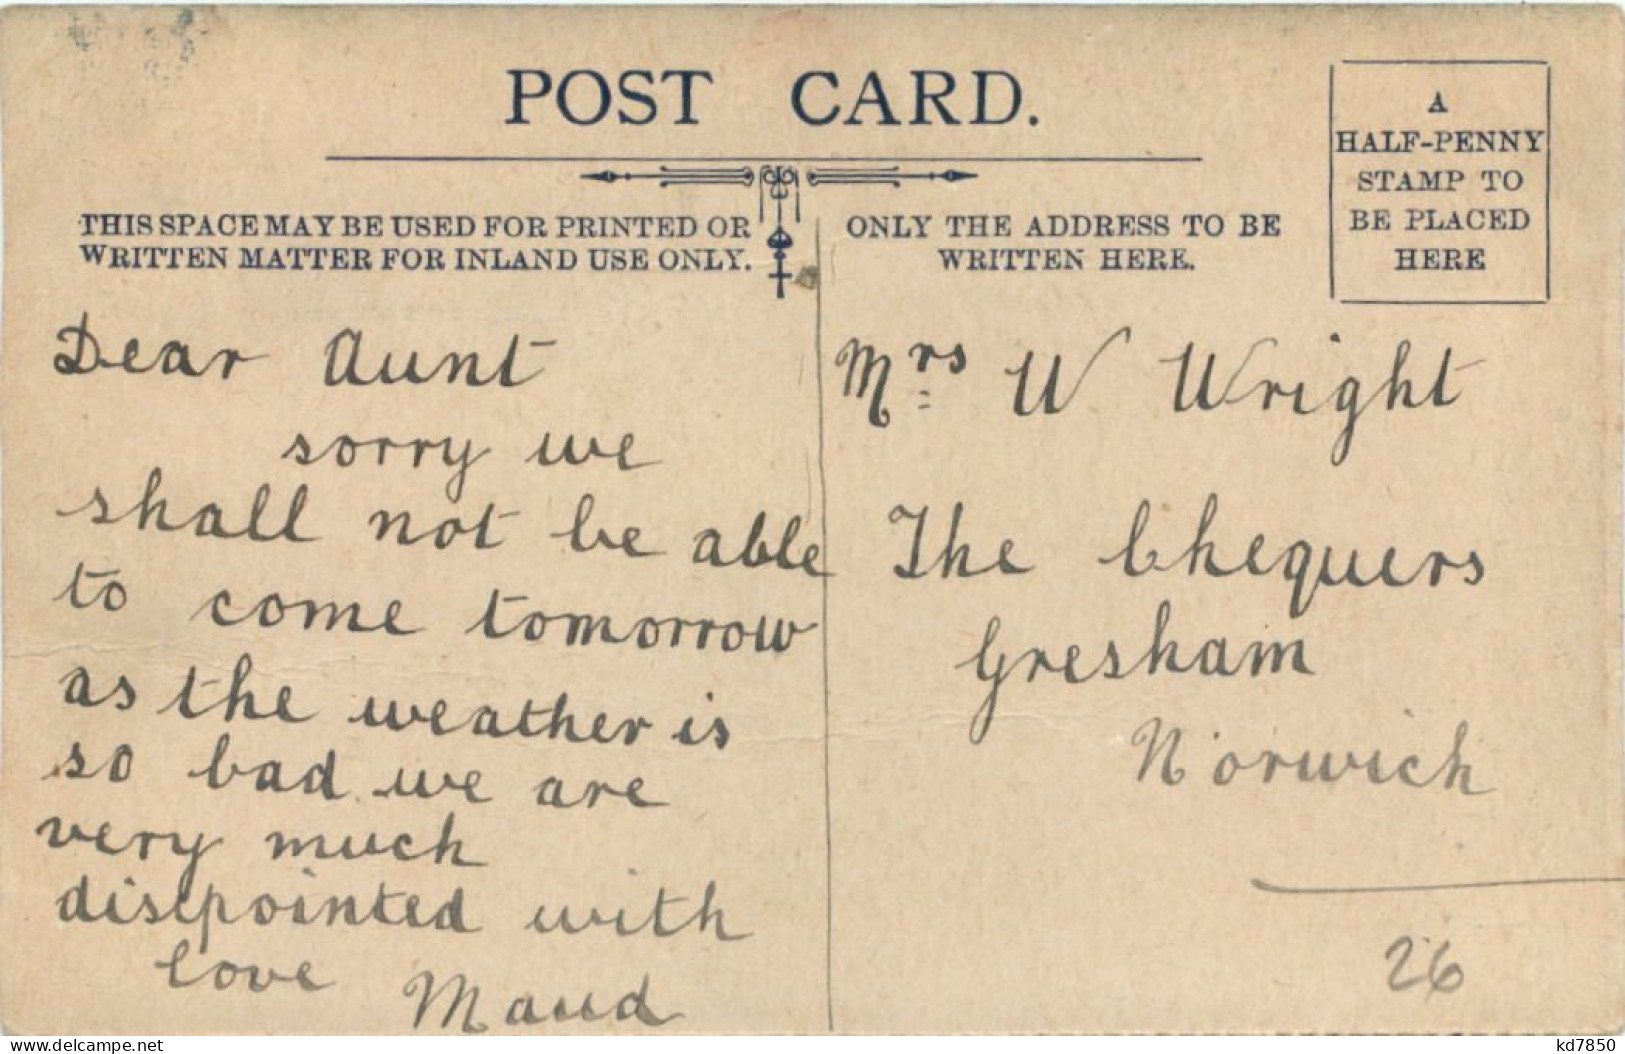 POST CARD.
A
HALF-PENNY
STAMP TO
BE PLACED
HERE
THIS SPACE MAY BE USED FOR PRINTED OR
WRITTEN MATTER FOR INLAND USE ONLY.
ONLY THE ADDRESS TO BE
WRITTEN HERE.
Dear Aunt
sorry we
shall not be able
to come tomorrow
as the weather is
so bad we are
very much
dispointed with
love Maud
Mrs W Wright
The Chequers
Gresham
Norwich
26
delcampe.net
kd7850